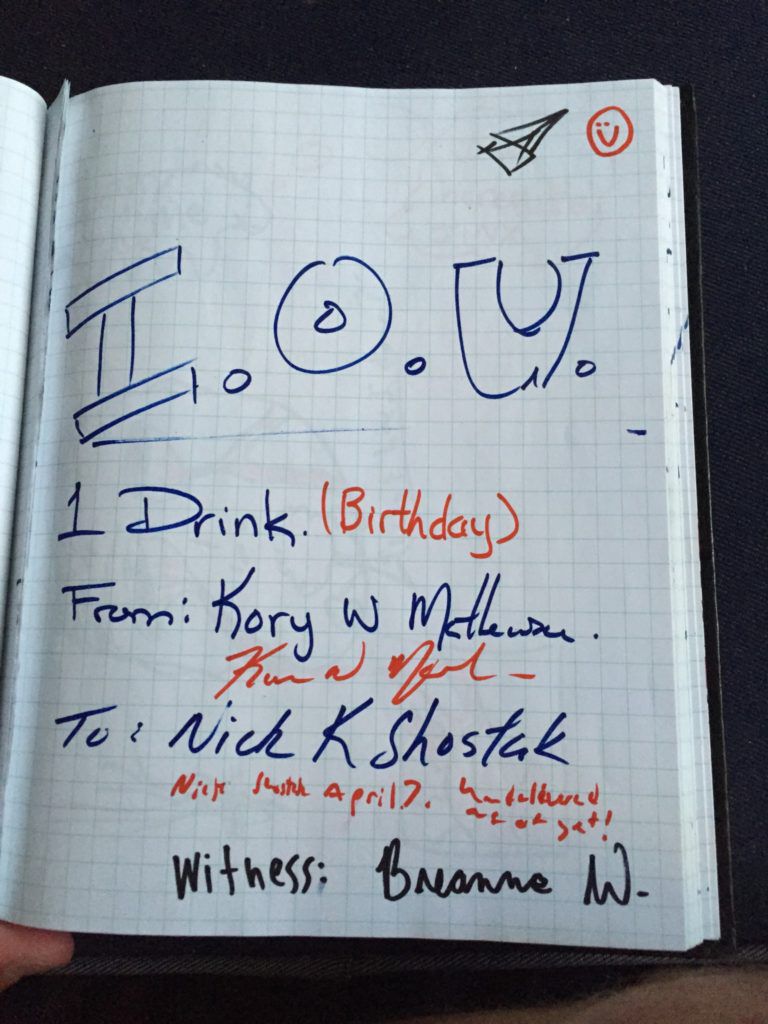 I.O.U.
1 Drink. (Birthday)
From: Kory W Mathewson.
To: Nick K Shostak
Nick Shostak April 7. Unfulfilled
as of yet!
Witness: Breanne W.